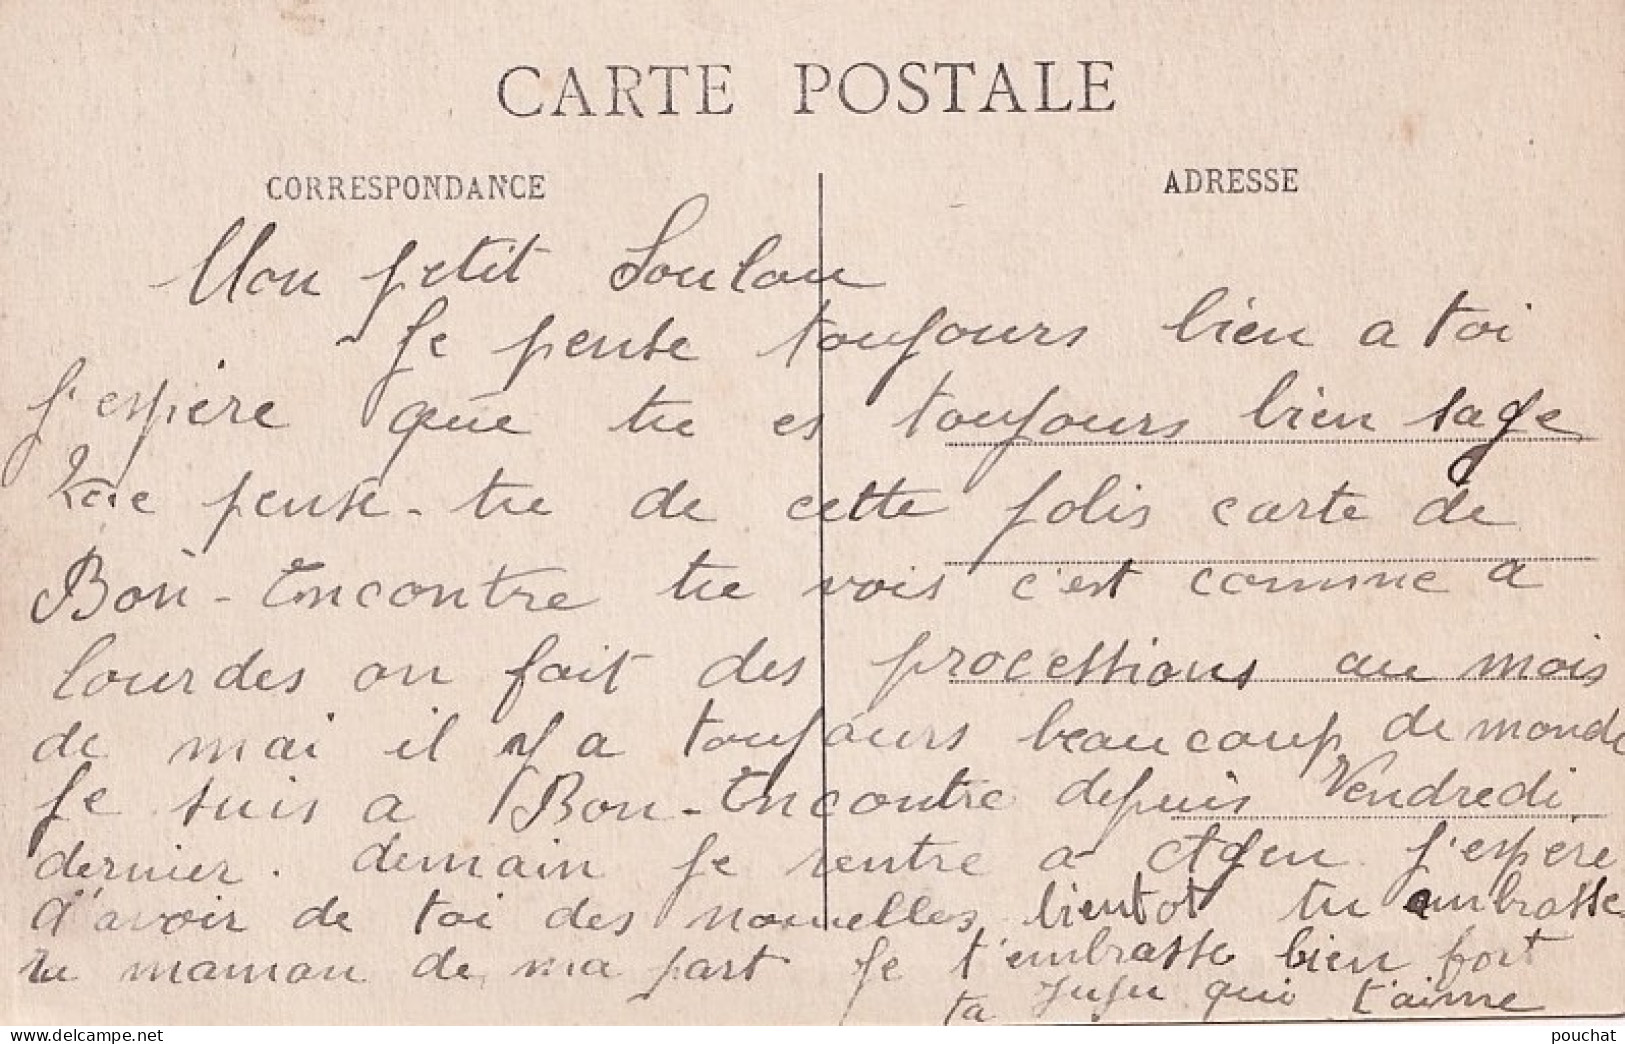 CARTE POSTALE
CORRESPONDANCE
ADRESSE
Mon petit Loulou
Je pense toujours bien a toi
J'espère que tu es toujours bien sage
Que pense-tu de cette jolis carte de
Bon-Encontre tu vois c'est comme a
lourdes on fait des processions au mois
de mai il y a toujours beaucoup de monde
Je suis a Bon-Encontre depuis Vendredi
dernier. demain je rentre a Agen j'espère
d'avoir de toi des nouvelles bientot tu embrasse
ta maman de ma part Je t'embrasse bien fort
ta Juju qui t'aime
www.delcampe.net
pouchat